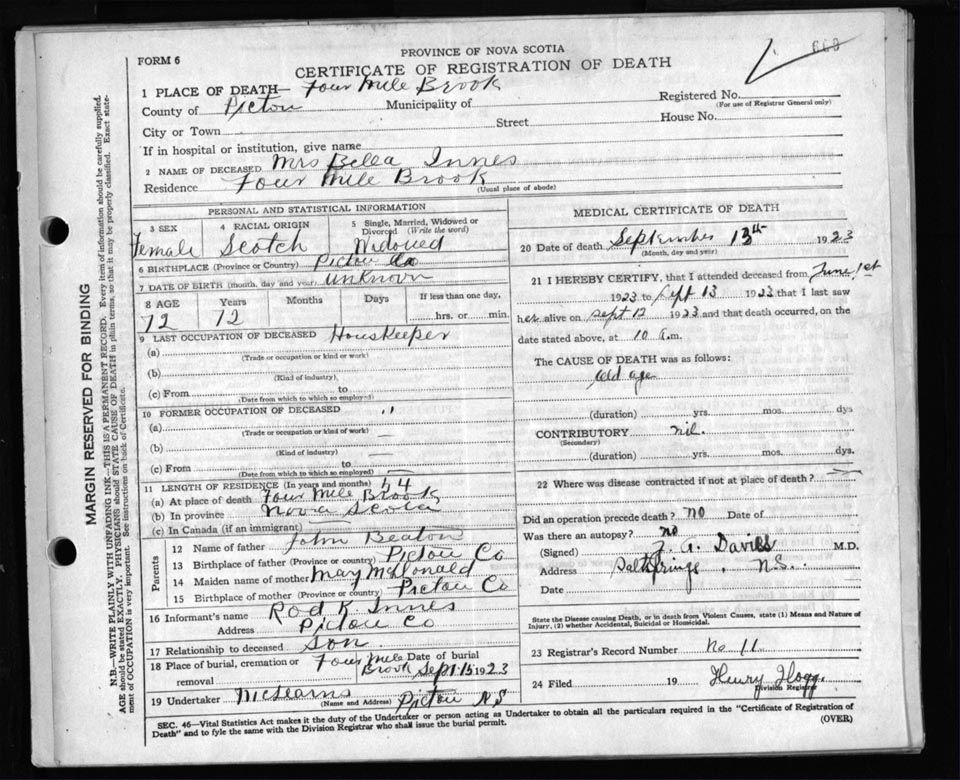 FORM 6
PROVINCE OF NOVA SCOTIA
CERTIFICATE OF REGISTRATION OF DEATH
1 PLACE OF DEATH— Four Mile Brook
County of Pictou Municipality of Registered No.
(For use of Registrar General only)
City or Town Street House No.
If in hospital or institution, give name
2 NAME OF DECEASED Mrs Bella Innes
Residence Four Mile Brook
(Usual place of abode)
MARGIN RESERVED FOR BINDING
N.B.—WRITE PLAINLY WITH UNFADING INK—THIS IS A PERMANENT RECORD. Every item of information should be carefully supplied.
AGE should be stated EXACTLY. PHYSICIANS should STATE CAUSE OF DEATH in plain terms, so that it may be properly classified. Exact state-
ment of OCCUPATION is very important. See instructions on back of Certificate.
PERSONAL AND STATISTICAL INFORMATION
3 SEX 4 RACIAL ORIGIN 5 Single, Married, Widowed or
Divorced (Write the word)
Female Scotch Widowed
6 BIRTHPLACE (Province or Country) Pictou Co
7 DATE OF BIRTH (month, day and year) unknown
8 AGE Years Months Days If less than one day,
72 72 hrs. or min.
9 LAST OCCUPATION OF DECEASED Houskeeper
(a)
(Trade or occupation or kind or work)
(b)
(Kind of industry)
(c) From to
(Date from which to which so employed)
10 FORMER OCCUPATION OF DECEASED "
(a)
(Trade or occupation or kind of work)
(b) —
(Kind of industry)
(c) From to —
(Date from which to which so employed)
11 LENGTH OF RESIDENCE (In years and months) 54
(a) At place of death Four Mile Brook
(b) In province Nova Scotia
(c) In Canada (if an immigrant)
Parents
12 Name of father John Beaton
13 Birthplace of father (Province or country) Pictou Co
14 Maiden name of mother Mary McDonald
15 Birthplace of mother (Province or country) Pictou Co
16 Informant's name Rod K. Innes
Address Pictou Co
17 Relationship to deceased Son
18 Place of burial, cremation or Four Mile Date of burial
removal Brook Sept 15 1923
19 Undertaker Pictou NS
(Name and Address)
MEDICAL CERTIFICATE OF DEATH
20 Date of death September 13th 1923
(Month, day and year)
21 I HEREBY CERTIFY, that I attended deceased from June 1st
1923 to Sept 13 1923 that I last saw
her alive on Sept 12 1923 and that death occurred, on the
date stated above, at 10 a.m.
The CAUSE OF DEATH was as follows:
old age
(duration) yrs. mos. dys
CONTRIBUTORY nil.
(Secondary)
(duration) yrs. mos. dys.
22 Where was disease contracted if not at place of death?
Did an operation precede death? NO Date of
Was there an autopsy? NO
(Signed) A. Davies M.D.
Address Saltsprings. N.S.
Date
State the Disease causing Death, or in death from Violent Causes, state (1) Means and Nature of
Injury, (2) whether Accidental, Suicidal or Homicidal.
23 Registrar's Record Number No 11
24 Filed 19 Henry Hogg
Division Registrar
SEC. 46—Vital Statistics Act makes it the duty of the Undertaker or person acting as Undertaker to obtain all the particulars required in the "Certificate of Registration of
Death" and to fyle the same with the Division Registrar who shall issue the burial permit. (OVER)